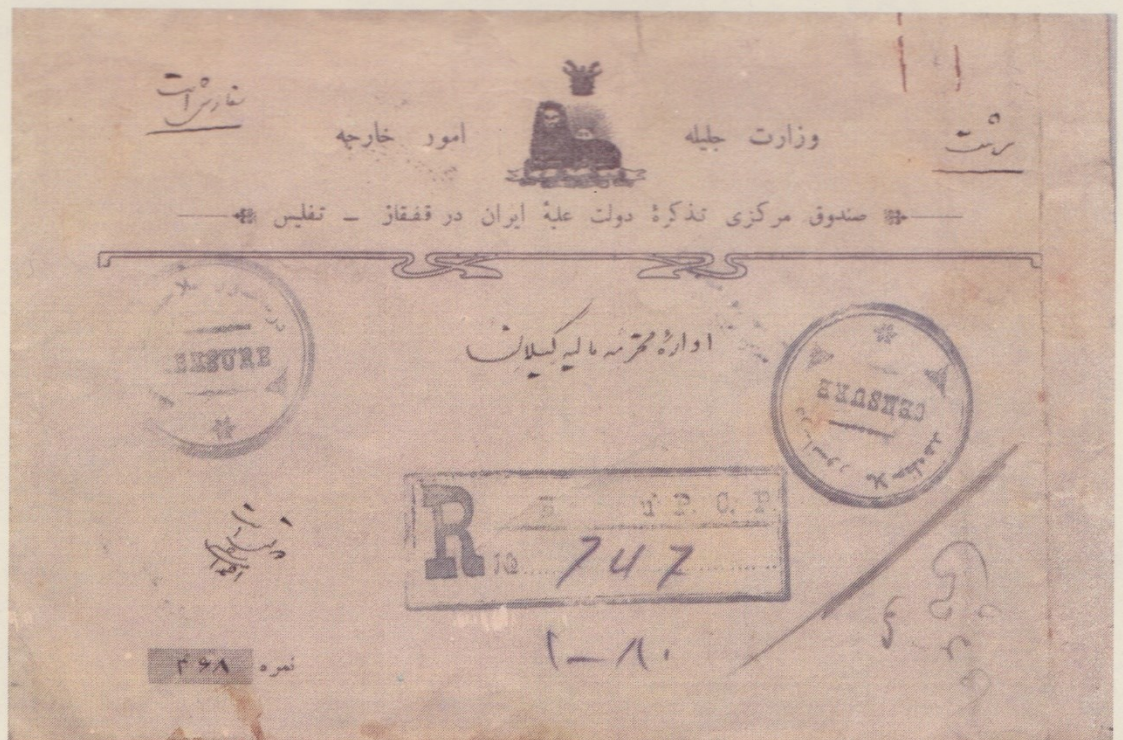 رشت
سفارشی است
وزارت جلیله امور خارجه
صندوق مرکزی تذکرهٔ دولت علیهٔ ایران در قفقاز ـ تفلیس
ادارهٔ محترمه مالیه گیلان
CENSURE
CENSURE
در سانسور ملاحظه شد
R P. C. P.
№ 747
۱-۸۰
نمره ۴۶۸
سفارشی